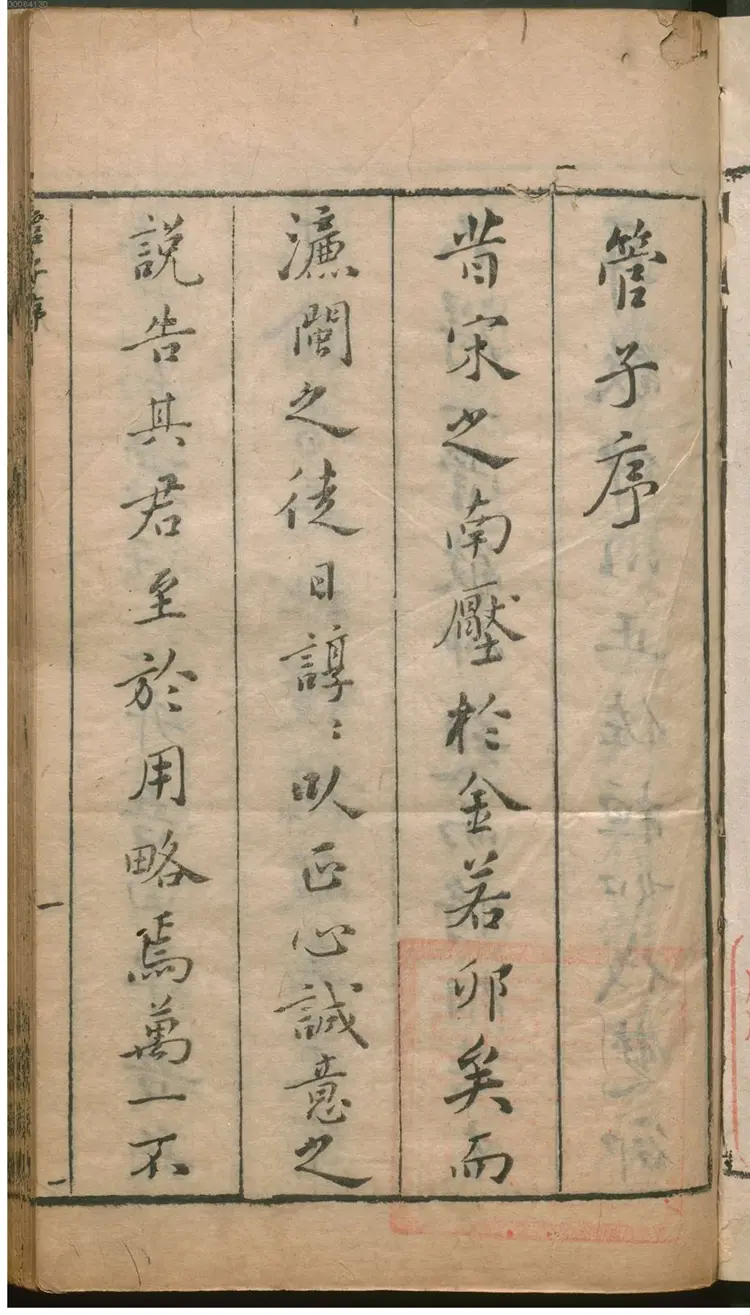 管子序
昔宋之南壓於金若卵矣而
濂閩之徒日諄〻以正心誠意之
説告其君至於用略焉萬一不
管子序
一
00084130